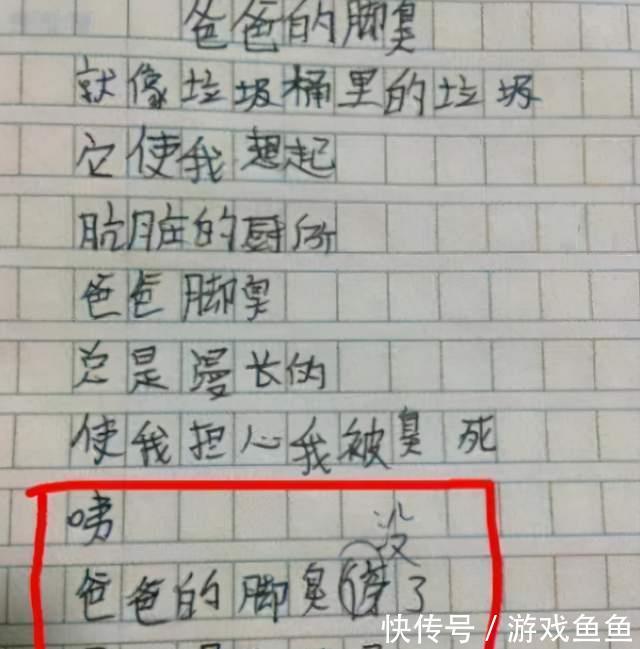 爸爸的脚臭
就像垃圾桶里的垃圾
它使我想起
肮脏的厨所
爸爸脚臭
总是漫长的
使我担心我被臭死
咦
没
爸爸的脚臭了
快传号/游戏鱼鱼